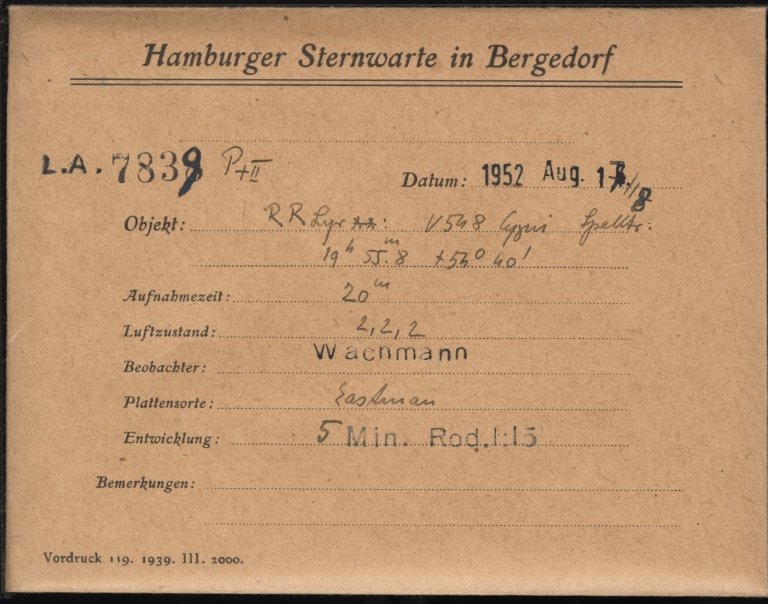 Hamburger Sternwarte in Bergedorf
L.A. 7839 P+II
Datum: 1952 Aug. 17/18
Objekt: RR Lyr V548 Cygni
19h 55m.8 +54° 40'
Aufnahmezeit: 20m
Luftzustand: 2,2,2
Beobachter: Wachmann
Plattensorte: Eastman
Entwicklung: 5 Min. Rod.1:15
Bemerkungen:
Vordruck 119. 1939. III. 2000.